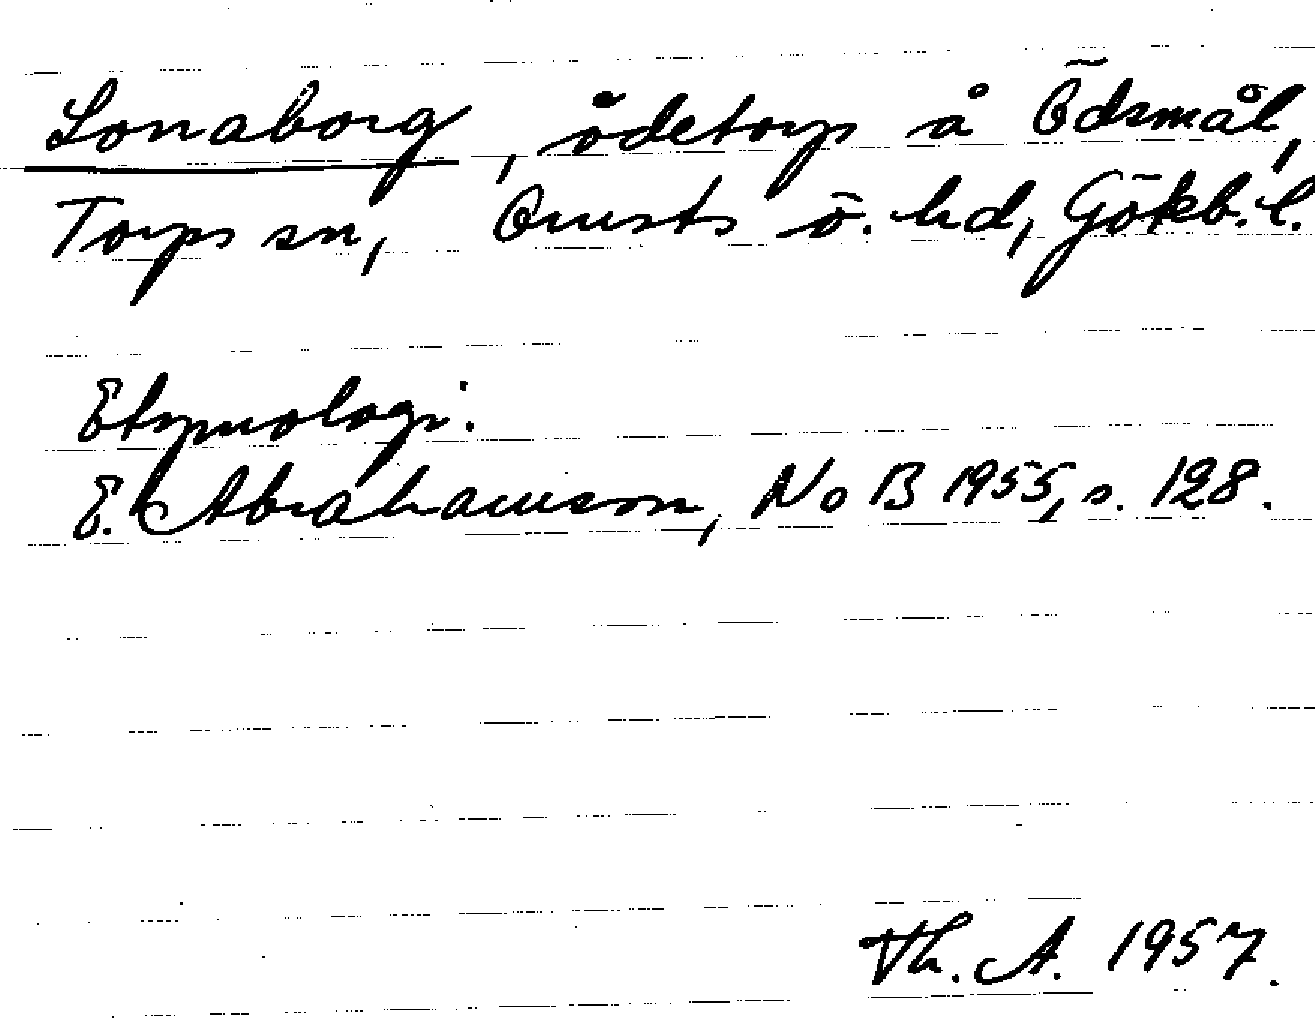 Lonaborg, ödetorp å Ödsmål,
Torps sn, Orusts ö. hd, Gökb. l.
Etymologi:
E. Abrahamson, NoB 1955, s. 128.
Th. A. 1957.